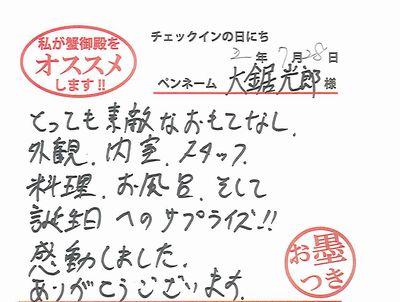 私が蟹御殿を
オススメ
します!!
チェックインの日にち
2年7月28日
ペンネーム 大鋸光郎 様
とっても素敵なおもてなし、
外観、内室、スタッフ、
料理、お風呂、そして
誕生日へのサプライズ!!
感動しました。
ありがとうございます。
お墨
つき